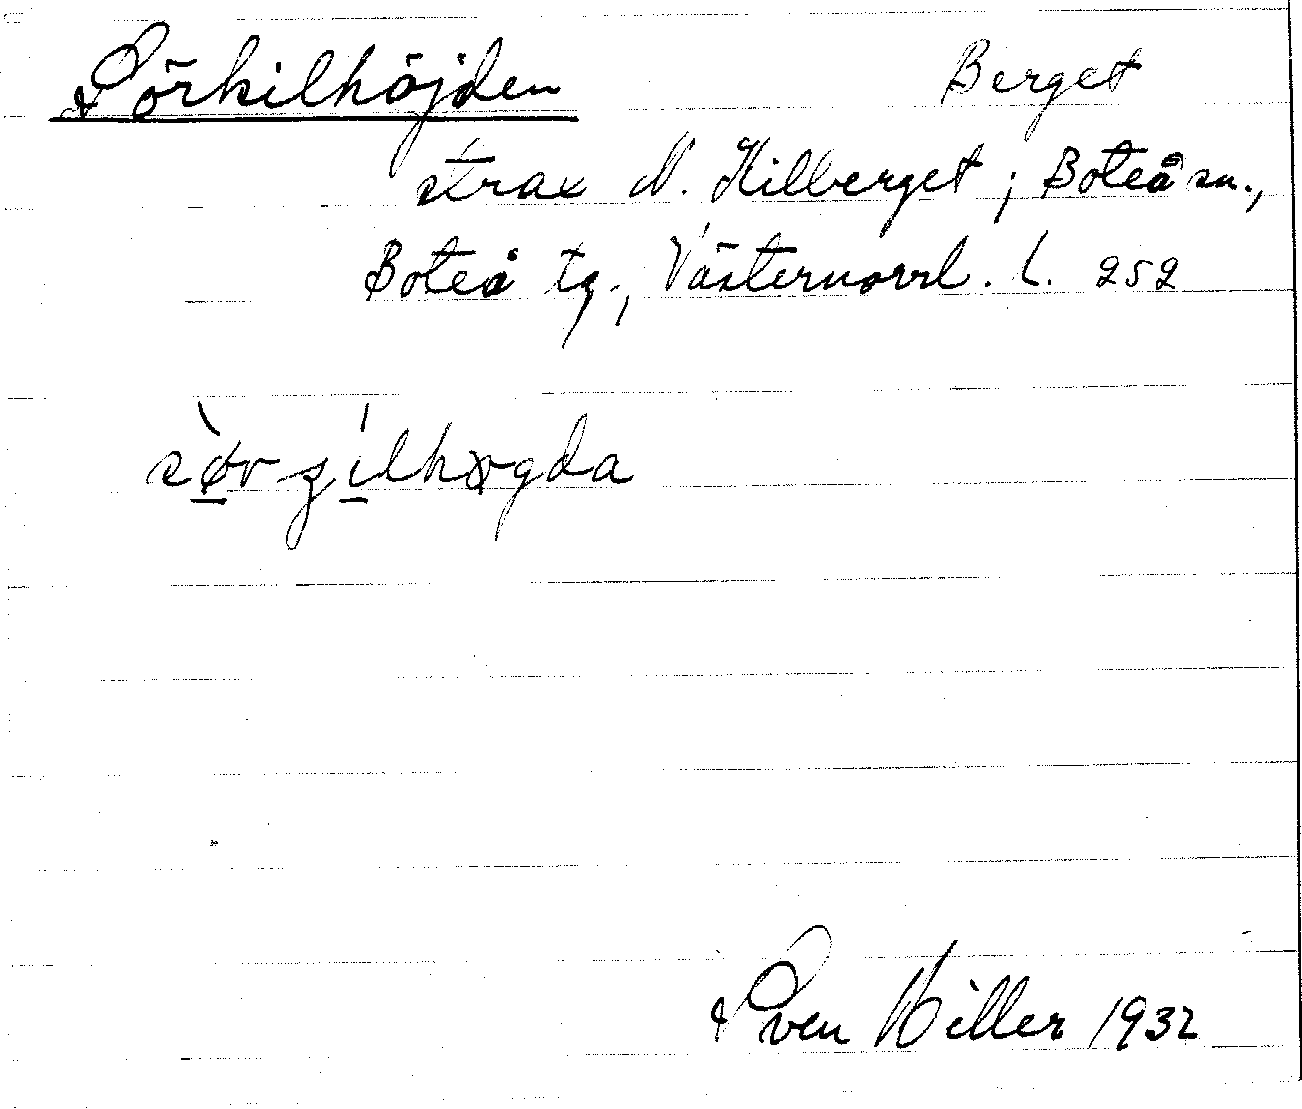 Sörkilhöjden Berget
strax N. Kilberget; Boteå sn.,
Boteå tg., Västernorrl. l. 252
Sven Hiller 1932